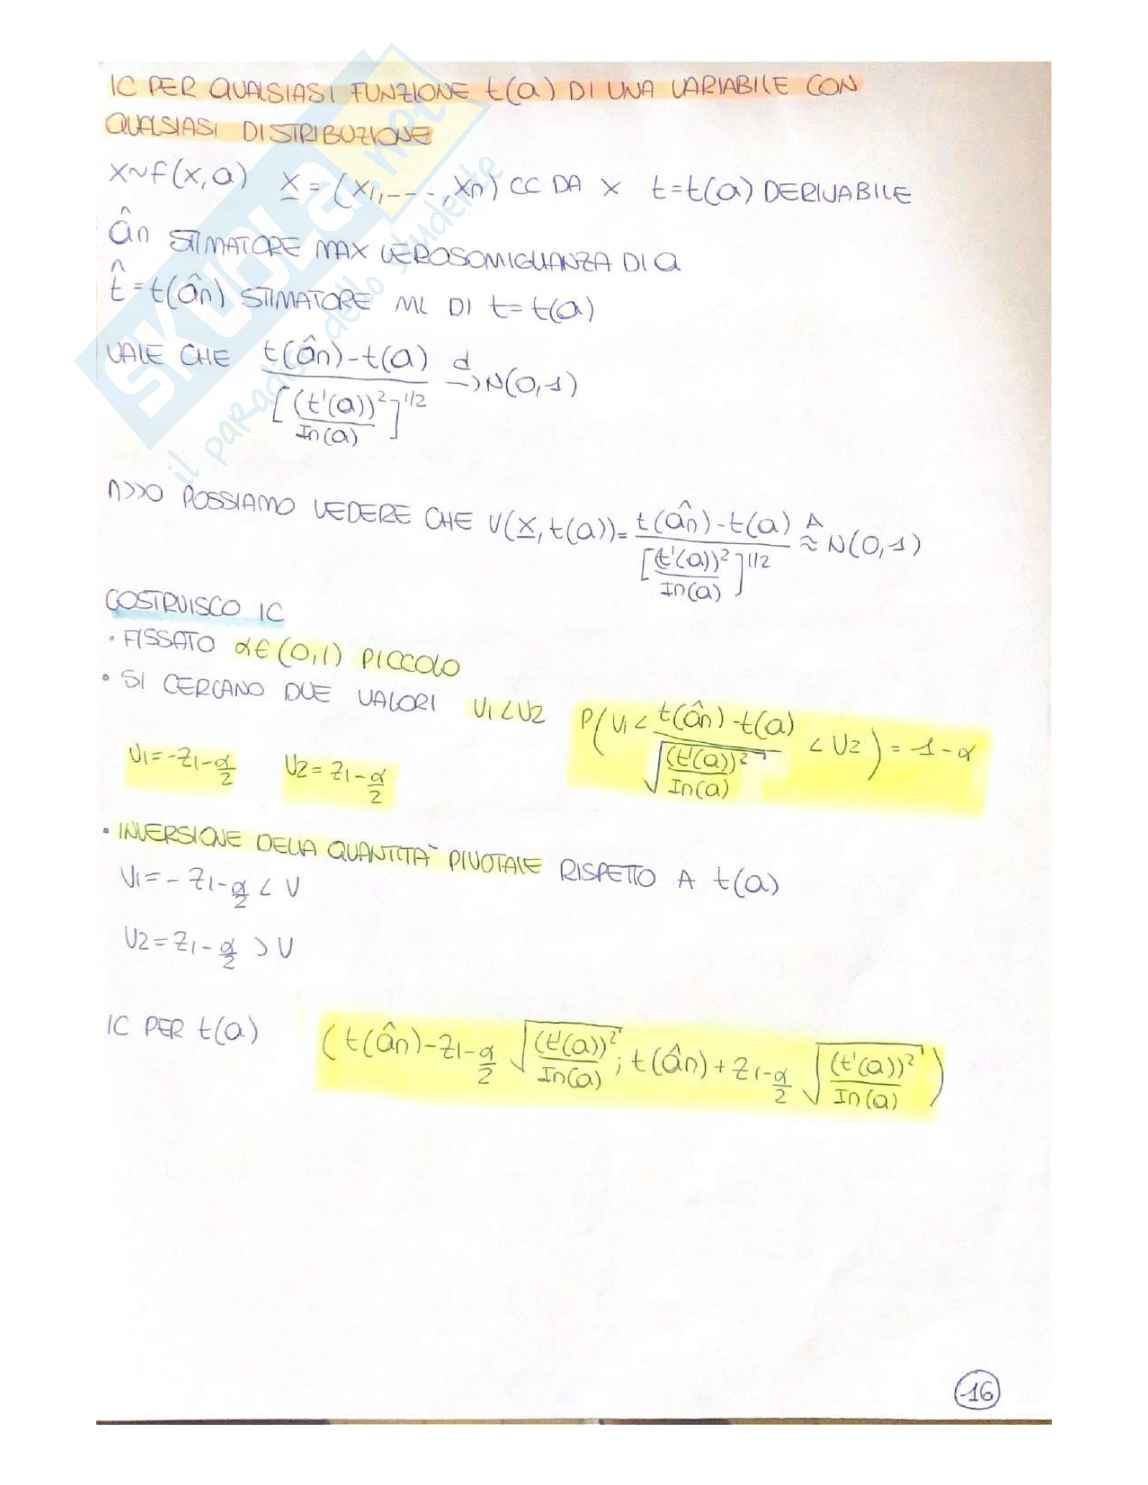 IC PER QUALSIASI FUNZIONE t(a) DI UNA VARIABILE CON
QUALSIASI DISTRIBUZIONE
X~f(x,a) X=(X1,---,Xn) CC DA X t=t(a) DERIVABILE
ân STIMATORE MAX VEROSOMIGLIANZA DI a
t̂=t(ân) STIMATORE ML DI t=t(a)
VALE CHE t(ân)-t(a) / [(t'(a))²/In(a)]^1/2 d→ N(0,1)
n>>0 POSSIAMO VEDERE CHE V(X,t(a))= t(ân)-t(a) / [(t'(a))²/In(a)]^1/2 A≈ N(0,1)
COSTRUISCO IC
• FISSATO α∈(0,1) PICCOLO
• SI CERCANO DUE VALORI V1<V2 P(V1< t(ân)-t(a) / √((t'(a))²/In(a)) <V2)=1-α
V1=-Z1-α/2 V2=Z1-α/2
• INVERSIONE DELLA QUANTITA' PIVOTALE RISPETTO A t(a)
V1=-Z1-α/2 < V
V2=Z1-α/2 > V
IC PER t(a) (t(ân)-Z1-α/2 √((t'(a))²/In(a)); t(ân)+Z1-α/2 √((t'(a))²/In(a)))
16
SKUOLA.net
il paradiso dello studente